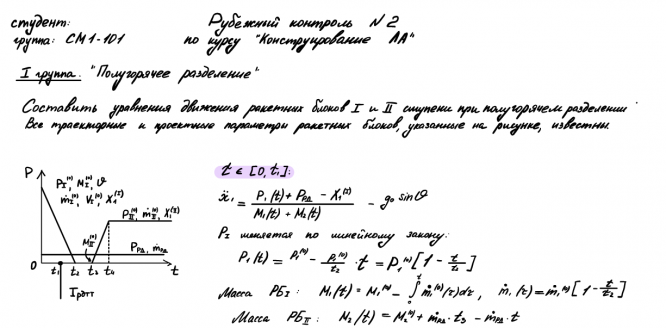 студент: Рубежный контроль N2
группа: СМ1-101 по курсу "Конструирование ЛА"
I группа. "Полугорячее разделение"
Составить уравнения движения ракетных блоков I и II ступени при полугорячем разделении.
Все траекторные и проектные параметры ракетных блоков, указанные на рисунке, известны.
P
P_I^(н), M_I^(н), ϑ
ṁ_I^(н), V_I^(н), X_1^(I)
P_II^(н), ṁ_II^(н), X_1^(I)
M_II^(н)
P_РД, ṁ_РД
0 t_1 t_2 t_3 t_4 t
I_РДТТ
t ∈ [0, t_1]:
ẍ_1 = (P_1(t) + P_РД − X_1^(I)) / (M_1(t) + M_2(t)) − g_0 sinϑ
P_I меняется по линейному закону:
P_1(t) = P_1^(н) − P_1^(н)/t_2 · t = P_1^(н) [1 − t/t_2]
Масса РБ_I: M_1(t) = M_1^(н) − ∫_0^t ṁ_1^(н)(τ)dτ, ṁ_1(τ) = ṁ_1^(н) [1 − τ/t_2]
Масса РБ_II: M_2(t) = M_2^(н) + ṁ_РД · t_3 − ṁ_РД · t